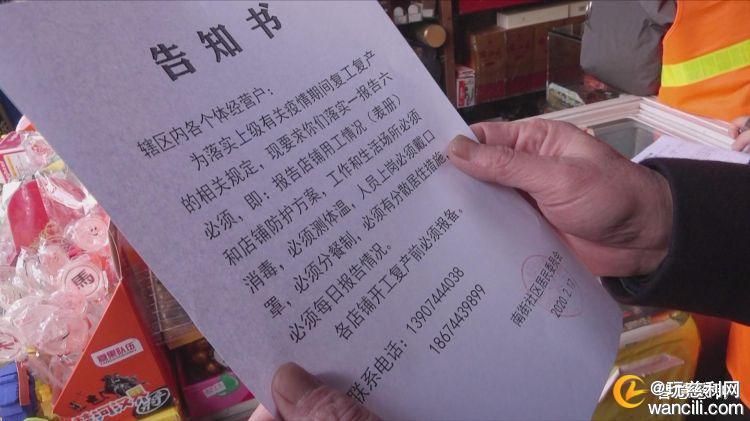 告知书
辖区内各个体经营户：
为落实上级有关疫情期间复工复产
的相关规定，现要求你们落实一报告六
必须，即：报告店铺用工情况（表册）
和店铺防护方案，工作和生活场所必须
消毒，必须测体温，人员上岗必须戴口
罩，必须分餐制，必须有分散居住措施，
必须每日报告情况。
各店铺开工复产前必须报备。
联系电话：13907444038
18674439899
南街社区居民委员会
2020.2.17
馬
糖果队伍
@玩慈利网
wancili.com